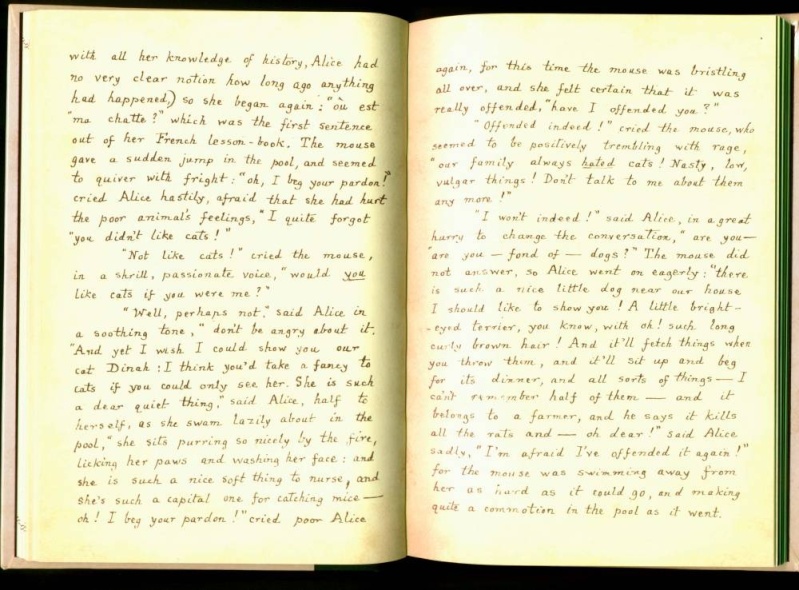 with all her knowledge of history, Alice had
no very clear notion how long ago anything
had happened,) so she began again: "où est
"ma chatte?" which was the first sentence
out of her French lesson-book. The mouse
gave a sudden jump in the pool, and seemed
to quiver with fright: "oh, I beg your pardon!"
cried Alice hastily, afraid that she had hurt
the poor animal's feelings, "I quite forgot
"you didn't like cats!"
"Not like cats!" cried the mouse,
in a shrill, passionate voice, "would you
like cats if you were me?"
"Well, perhaps not," said Alice in
a soothing tone, "don't be angry about it.
"And yet I wish I could show you our
cat Dinah: I think you'd take a fancy to
cats if you could only see her. She is such
a dear quiet thing," said Alice, half to
herself, as she swam lazily about in the
pool, "she sits purring so nicely by the fire,
licking her paws and washing her face: and
she is such a nice soft thing to nurse, and
she's such a capital one for catching mice —
oh! I beg your pardon!" cried poor Alice
again, for this time the mouse was bristling
all over, and she felt certain that it was
really offended, "have I offended you?"
"Offended indeed!" cried the mouse, who
seemed to be positively trembling with rage,
"our family always hated cats! Nasty, low,
vulgar things! Don't talk to me about them
any more!"
"I won't indeed!" said Alice, in a great
hurry to change the conversation, "are you—
"are you — fond of — dogs?" The mouse did
not answer, so Alice went on eagerly: "there
is such a nice little dog near our house
I should like to show you! A little bright-
-eyed terrier, you know, with oh! such long
curly brown hair! And it'll fetch things when
you throw them, and it'll sit up and beg
for its dinner, and all sorts of things — I
can't remember half of them — and it
belongs to a farmer, and he says it kills
all the rats and — oh dear!" said Alice
sadly, "I'm afraid I've offended it again!"
for the mouse was swimming away from
her as hard as it could go, and making
quite a commotion in the pool as it went.